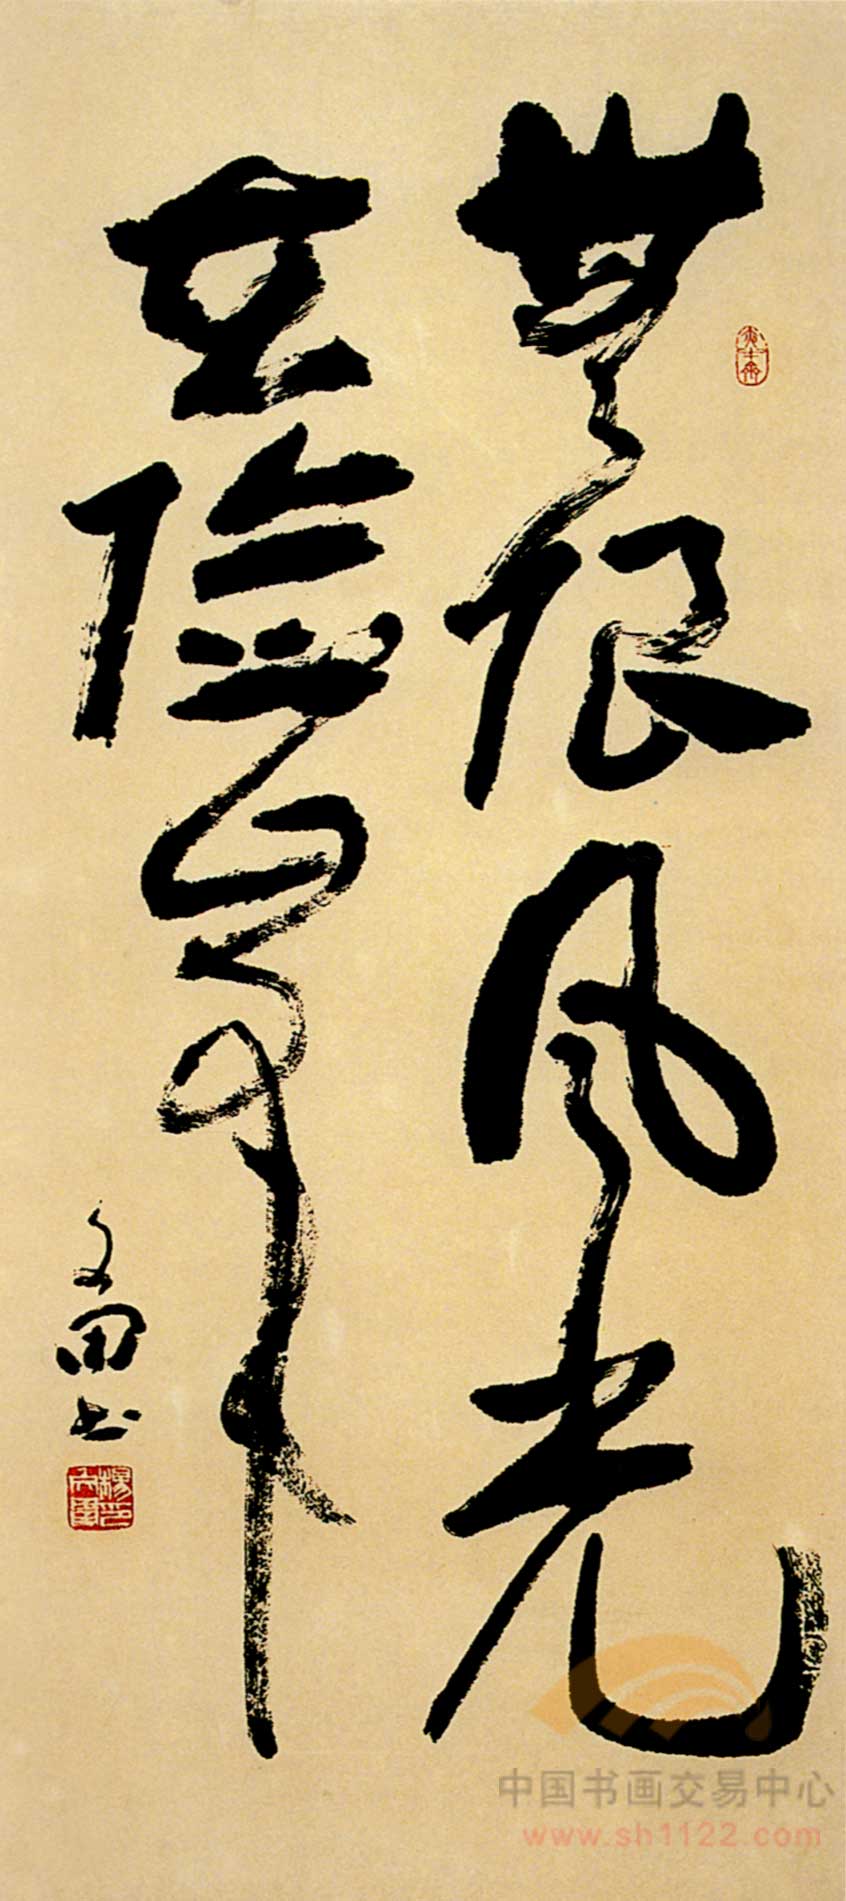 無限風光
在險峰
文田书
中国书画交易中心
www.sh1122.com